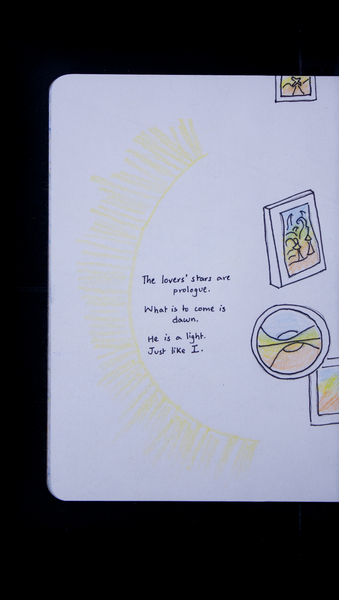 The lovers' stars are
prologue.
What is to come is
dawn.
He is a light.
Just like I.